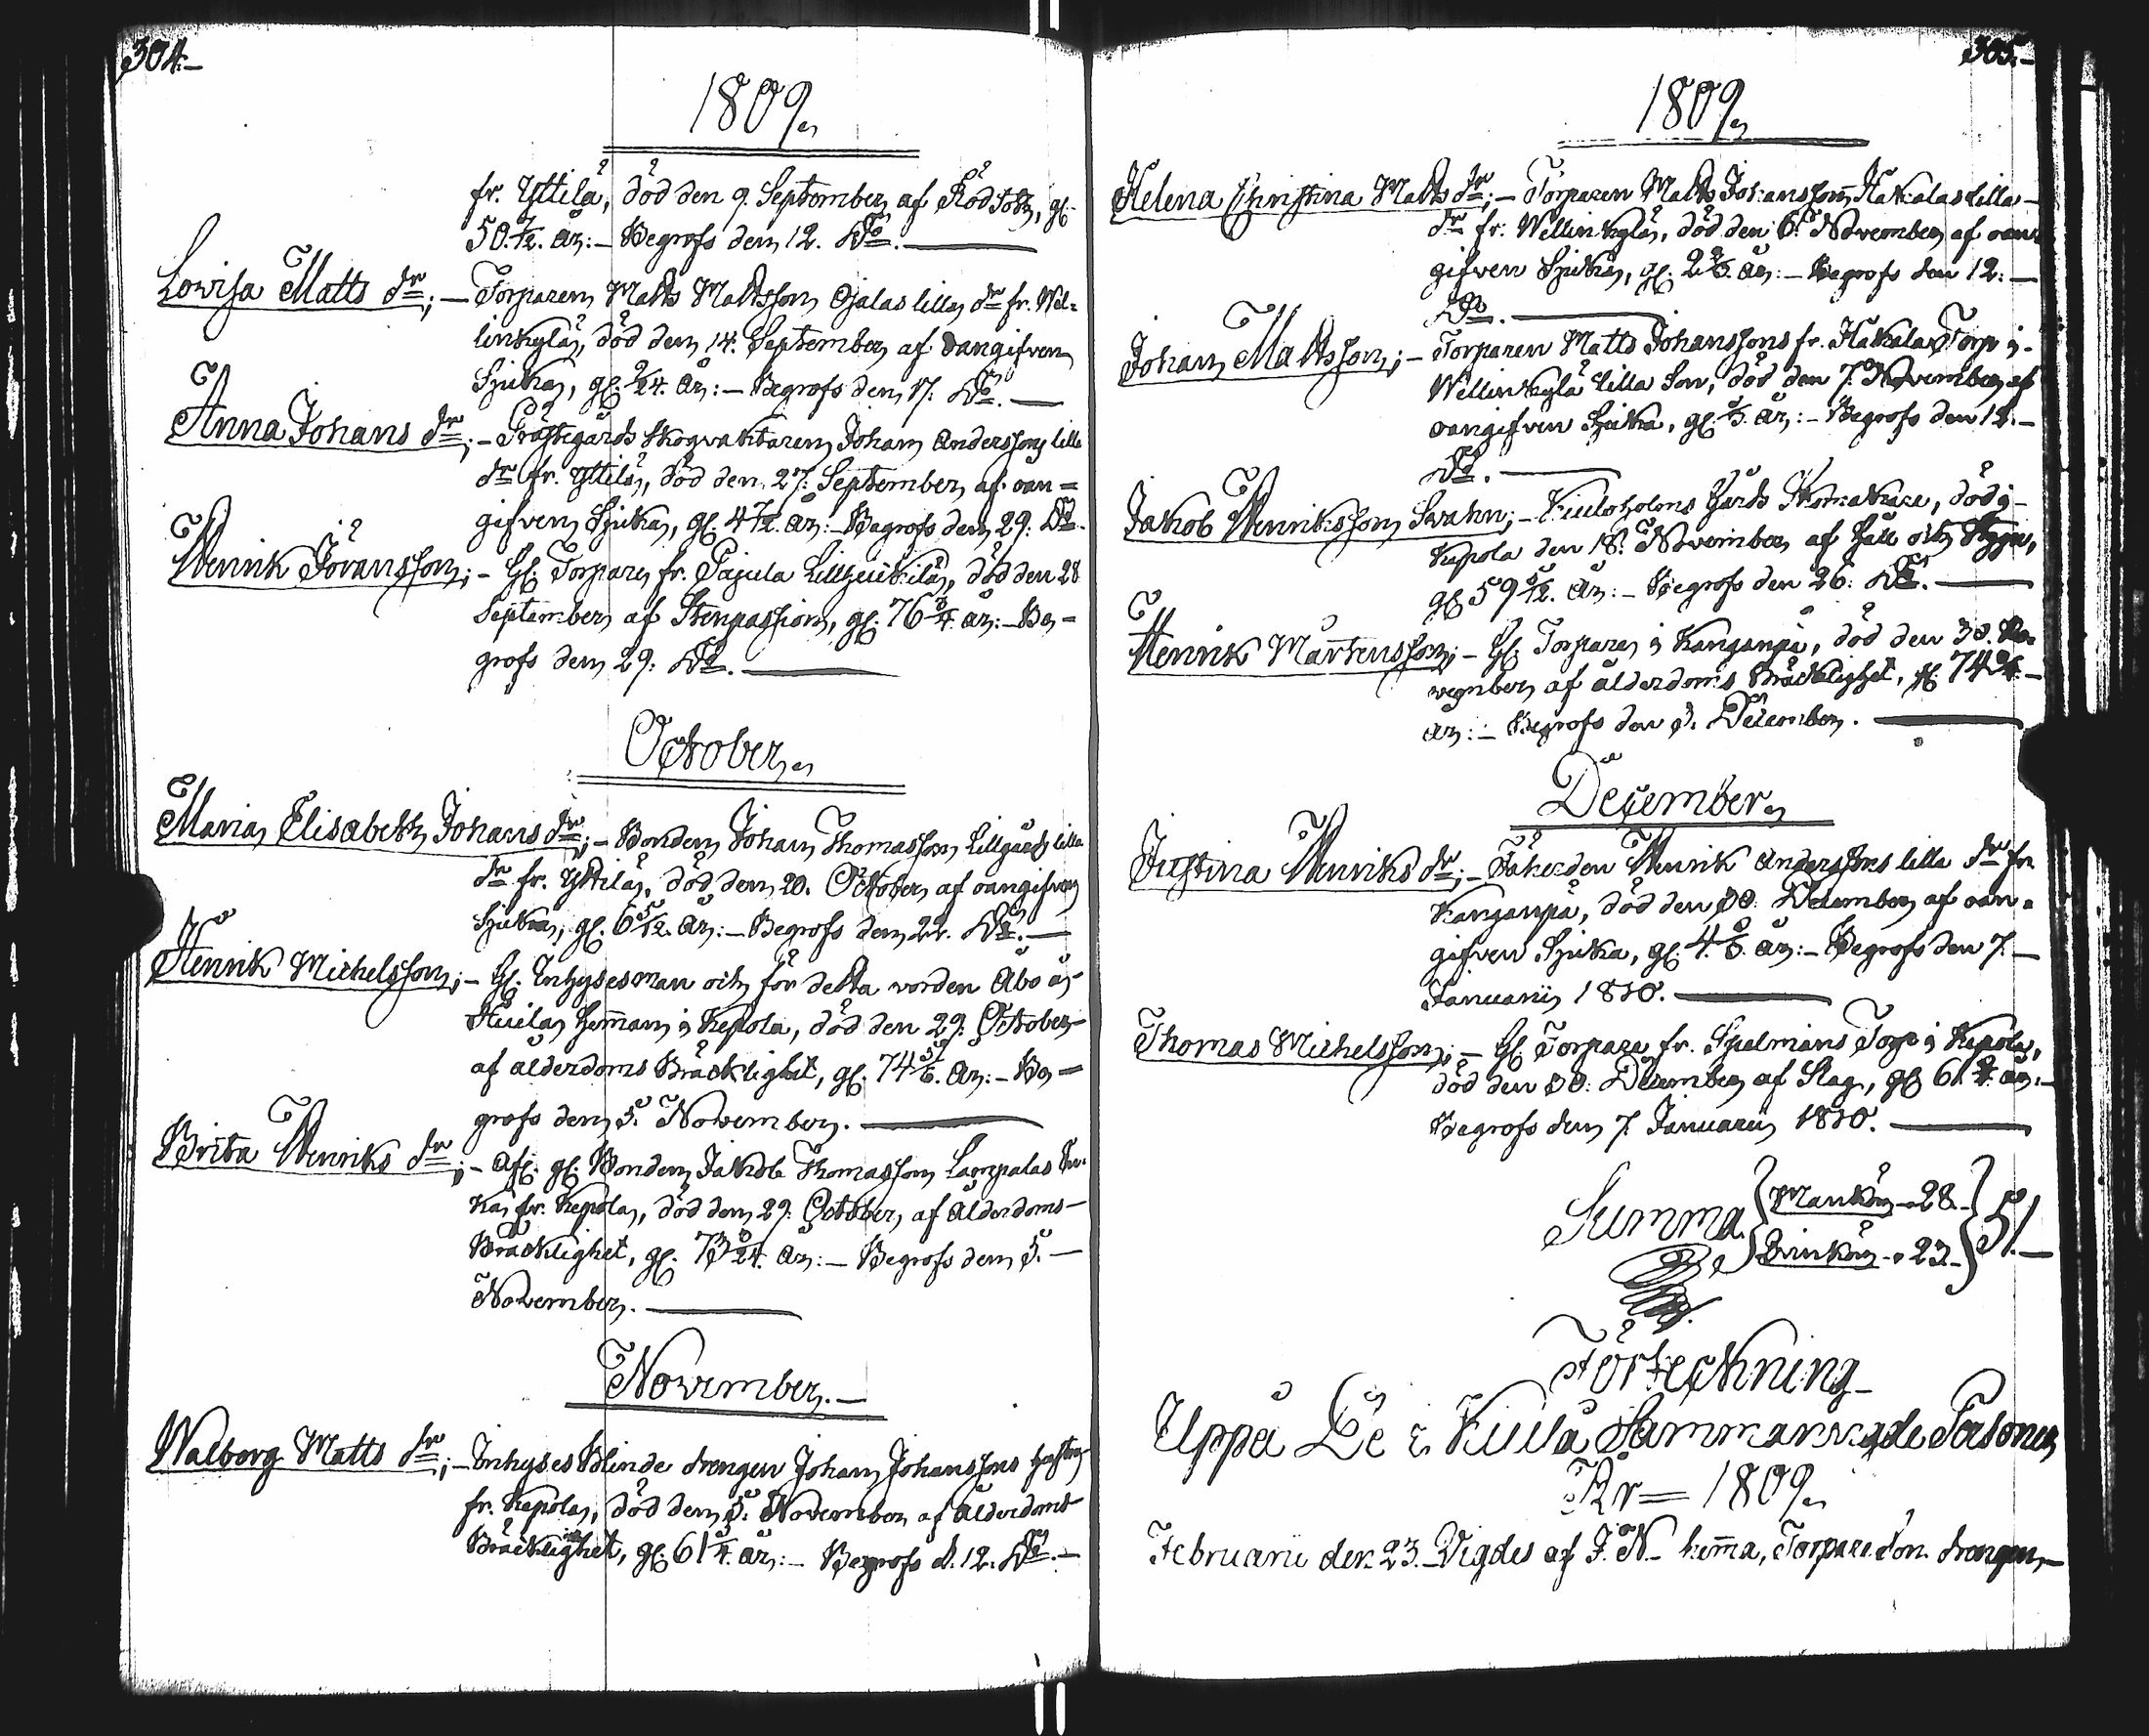 304.
1809.
fr. Yttilä, död den 9. September af Rödsoth, gl.
50 7/12. år: – Begrofs den 12. Do.
Lovisa Matts dr; – Torparen Matts Mattsson Ojalas lilla dr fr. Wel-
linkylä, död den 14. September af oangifven
Sjuka, gl. /24. år: – Begrofs den 17. Do. –
Anna Johans dr; – Prästegårds Skogvaktaren Johan Anderssons lilla
dr fr. Yttilä, död den 27. September af oan-
gifven Sjuka, gl. 4 /12. år: – Begrofs den 29. Do.
Henrik Jöransson; – Gl. Torpare fr. Pajula, död den 28
September af Stenpassion, gl. 76 3/4. år: – Be-
grofs den 29. Do.
October.
Maria Elisabeth Johans dr; – Bonden Johan Thomasson Lillgårds lilla
dr fr. Yttilä, död den 20. October af oangifven
Sjuka, gl. 6 5/12. år: – Begrofs den 22. Do. –
Henrik Michelsson; – Gl. Inhysesman och för detta vorden Åbo å
Huila hemman i Kepola, död den 29. October
af ålderdoms Bräcklighet, gl. 74 5/6. år: – Be-
grofs den 5. November.
Brita Henriks dr; – Afl. gl. Bonden Jakob Thomasson Lampalas En-
ka fr. Kepola, död den 29. October af Ålderdoms-
Bräcklighet, gl. 73 /24. år: – Begrofs den 5. –
November.
November. –
Walborg Matts dr; – Inhyses Blinde drengen Johan Johanssons hustru
fr. Kepola, död den 5. November af Ålderdoms
Bräcklighet, gl. 61 /4. år: – Begrofs d. 12. Do. –
305.
1809.
Helena Christina Matts dr; – Torparen Matts Johansson Hakalas lilla –
dr fr. Wellinkylä, död den 6. November af oan-
gifven Sjuka, gl. 2 år: – Begrofs den 12. –
Do.
Johan Mattsson; – Torparen Matts Johanssons fr. Hakala Torp i –
Wellinkylä lilla Son, död den 7. November af
oangifven Sjuka, gl. år: – Begrofs den 12. –
Do.
Jakob Henriksson Svahn; – Kiuloholms Gårds Skomakare, död i –
Kepola den 18. November af Håll och Styng,
gl. 59 5/12. år: – Begrofs den 26. Do.
Henrik Mårtensson; – Gl. Torpare i Kanganpä, död den 30. No-
vember af ålderdoms Bräcklighet, gl. 74 –
år: – Begrofs den 3. December.
December
Justina Henriks dr; – Henrik Anderssons lilla dr fr.
Kanganpä, död den 30. December af oan-
gifven Sjuka, gl. 4 år: – Begrofs den 7. –
Januarii 1810.
Thomas Michelsson; – Gl. Torpare fr. Spelmans Torp i Kepola,
död den 30. December af Slag, gl. 61 år: –
Begrofs den 7. Januarii 1810.
Summa { Mankön – 28. – } 51. –
Qvinkön – 23. –
Förteckning
Uppå De i Kiula Sammanvigde Personer
År = 1809.
Februarii den 23. Vigdes af J. N – hemma, Torpare Son drengen –